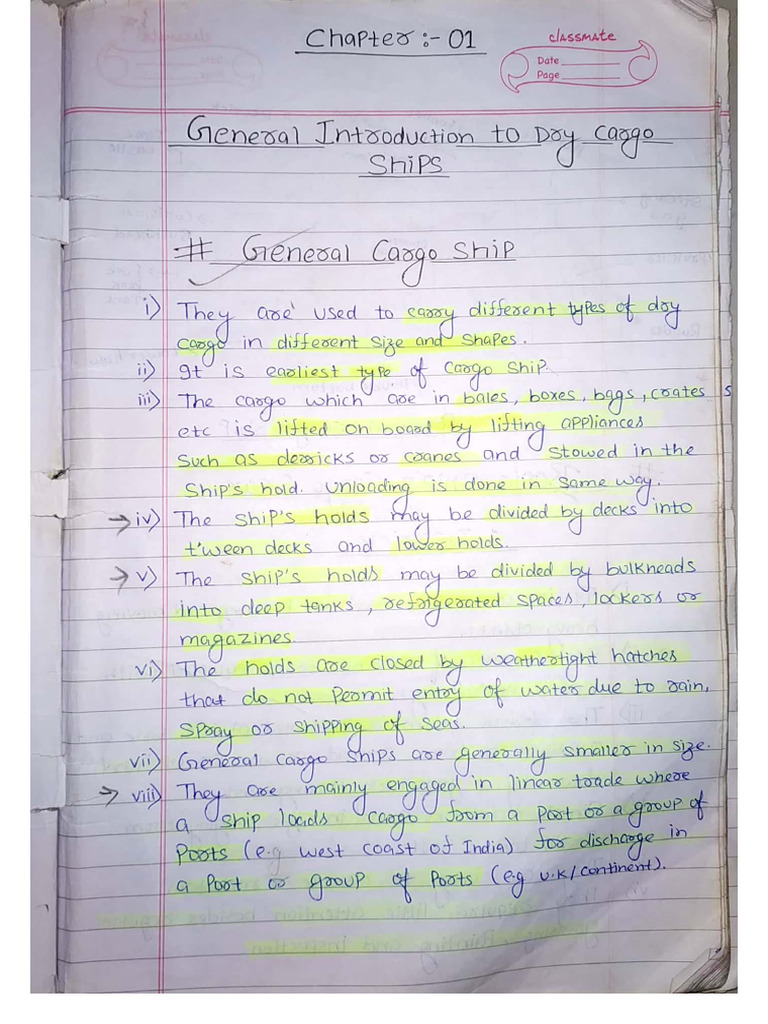 Chapter :- 01
classmate
Date
Page
General Introduction to Dry Cargo
Ships
# General Cargo Ship
i) They are used to carry different types of dry
cargo in different size and shapes.
ii) It is earliest type of cargo ship.
iii) The cargo which are in bales, boxes, bags, crates
etc is lifted on board by lifting appliances
such as derricks or cranes and stowed in the
ship's hold. Unloading is done in same way.
→ iv) The ship's holds may be divided by decks into
t'ween decks and lower holds.
→ v) The ship's holds may be divided by bulkheads
into deep tanks, refrigerated spaces, lockers or
magazines.
vi) The holds are closed by weathertight hatches
that do not permit entry of water due to rain,
spray or shipping of seas.
vii) General cargo ships are generally smaller in size.
→ viii) They are mainly engaged in linear trade where
a ship loads cargo from a port or a group of
ports (e.g west coast of India) for discharge in
a port or group of ports (e.g U.K/continent).